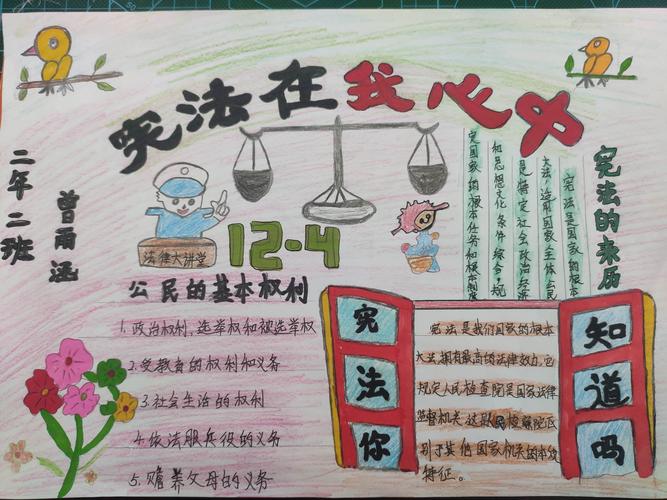 宪法在我心中
二年二班
曾雨涵
法律大讲堂
12-4
公民的基本权利
1.政治权利,选举权和被选举权
2.受教育的权利和义务
3.社会生活的权利
4.依法服兵役的义务
5.赡养父母的义务
宪法的来历
宪法是国家的根本
大法,适用国家主体公民
是特定社会政治经济
和思想文化条件综合规
定国家的根本任务和根本制度
宪法你
知道吗
宪法是我们国家的根本
大法,拥有最高的法律效力,它
规定人民检查院是国家法律
监督机关,这是民检察院区
别于其他国家机关的本质
特征。